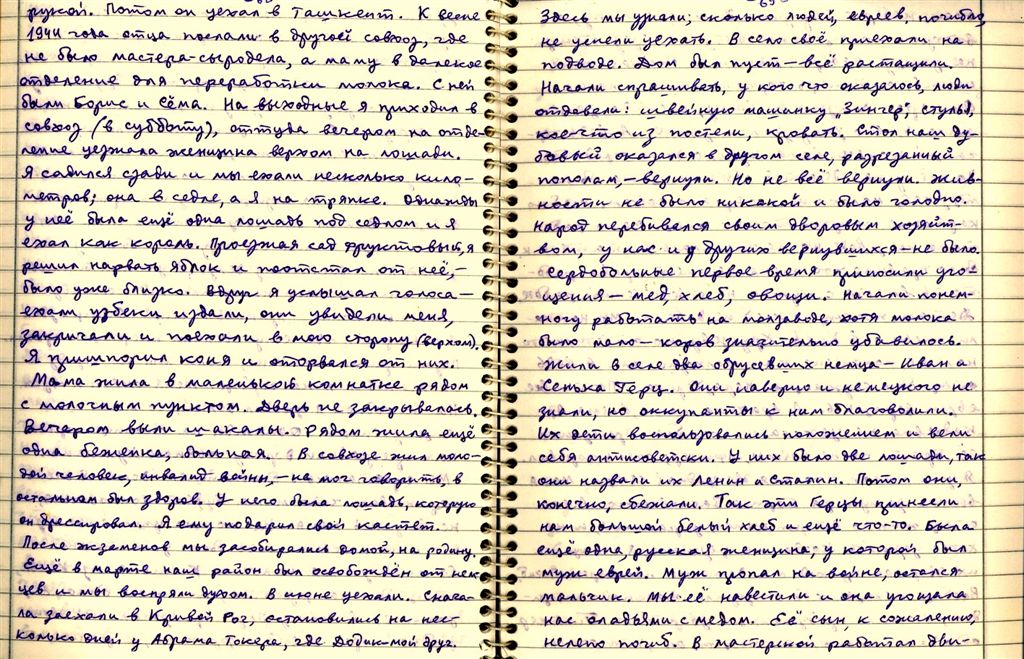 рукой. Потом он уехал в Ташкент. К весне
1944 года отца послали в другой совхоз, где
не было мастера-сыродела, а маму в далекое
отделение для переработки молока. С ней
были Борис и Сёма. На выходные я приходил в
совхоз (в субботу), оттуда вечером на отде-
ление уезжала женщина верхом на лошади.
Я садился сзади и мы ехали несколько кило-
метров; она в седле, а я на тряпке. Однажды
у неё была ещё одна лошадь под седлом и я
ехал как король. Проезжая сад фруктовый, я
решил нарвать яблок и поотстал от неё,—
было уже близко. Вдруг я услышал голоса—
ехали узбеки издали, они увидели меня,
закричали и поехали в мою сторону (верхом).
Я пришпорил коня и оторвался от них.
Мама жила в маленькой комнатке рядом
с молочным пунктом. Дверь не закрывалась.
Вечером выли шакалы. Рядом жила ещё
одна беженка, больная. В совхозе жил моло-
дой человек, инвалид войны,— не мог говорить, в
остальном был здоров. У него была лошадь, которую
он дрессировал. Я ему подарил свой кастет.
После экзаменов мы засобирались домой, на родину.
Ещё в марте наш район был освобождён от нем-
цев и мы воспряли духом. В июне уехали. Снача-
ла заехали в Кривой Рог, остановились на нес-
колько дней у Абрама Токера, где Додик-мой друг.
Здесь мы узнали, сколько людей, евреев, погибло,
не успели уехать. В село своё приехали на
подводе. Дом был пуст—всё растащили.
Начали спрашивать, у кого что оказалось, люди
отдавали: швейную машинку „Зингер", стулья,
кое-что из постели, кровать. Стол наш ду-
бовый оказался в другом селе, разрезанный
пополам,—вернули. Но не всё вернули. Жив-
ности не было никакой и было голодно.
Народ перебивался своим дворовым хозяйст-
вом, у нас и у других вернувшихся—не было.
Сердобольные первое время приносили уго-
щения—мёд, хлеб, овощи. Начали понем-
ногу работать на молзаводе, хотя молока
было мало—коров значительно убавилось.
Жили в селе два обрусевших немца—Иван и
Сенька Герц. Они наверно и немецкого не
знали, но оккупанты к ним благоволили.
Их дети воспользовались положением и вели
себя антисоветски. У них было две лошади, так
они назвали их Ленин и Сталин. Потом они,
конечно, сбежали. Так эти Герцы принесли
нам большой белый хлеб и ещё что-то. Была
ещё одна, русская женщина, у которой был
муж еврей. Муж пропал на войне, остался
мальчик. Мы её навестили и она угощала
нас оладьями с мёдом. Её сын, к сожалению,
нелепо погиб. В мастерской работал дви-